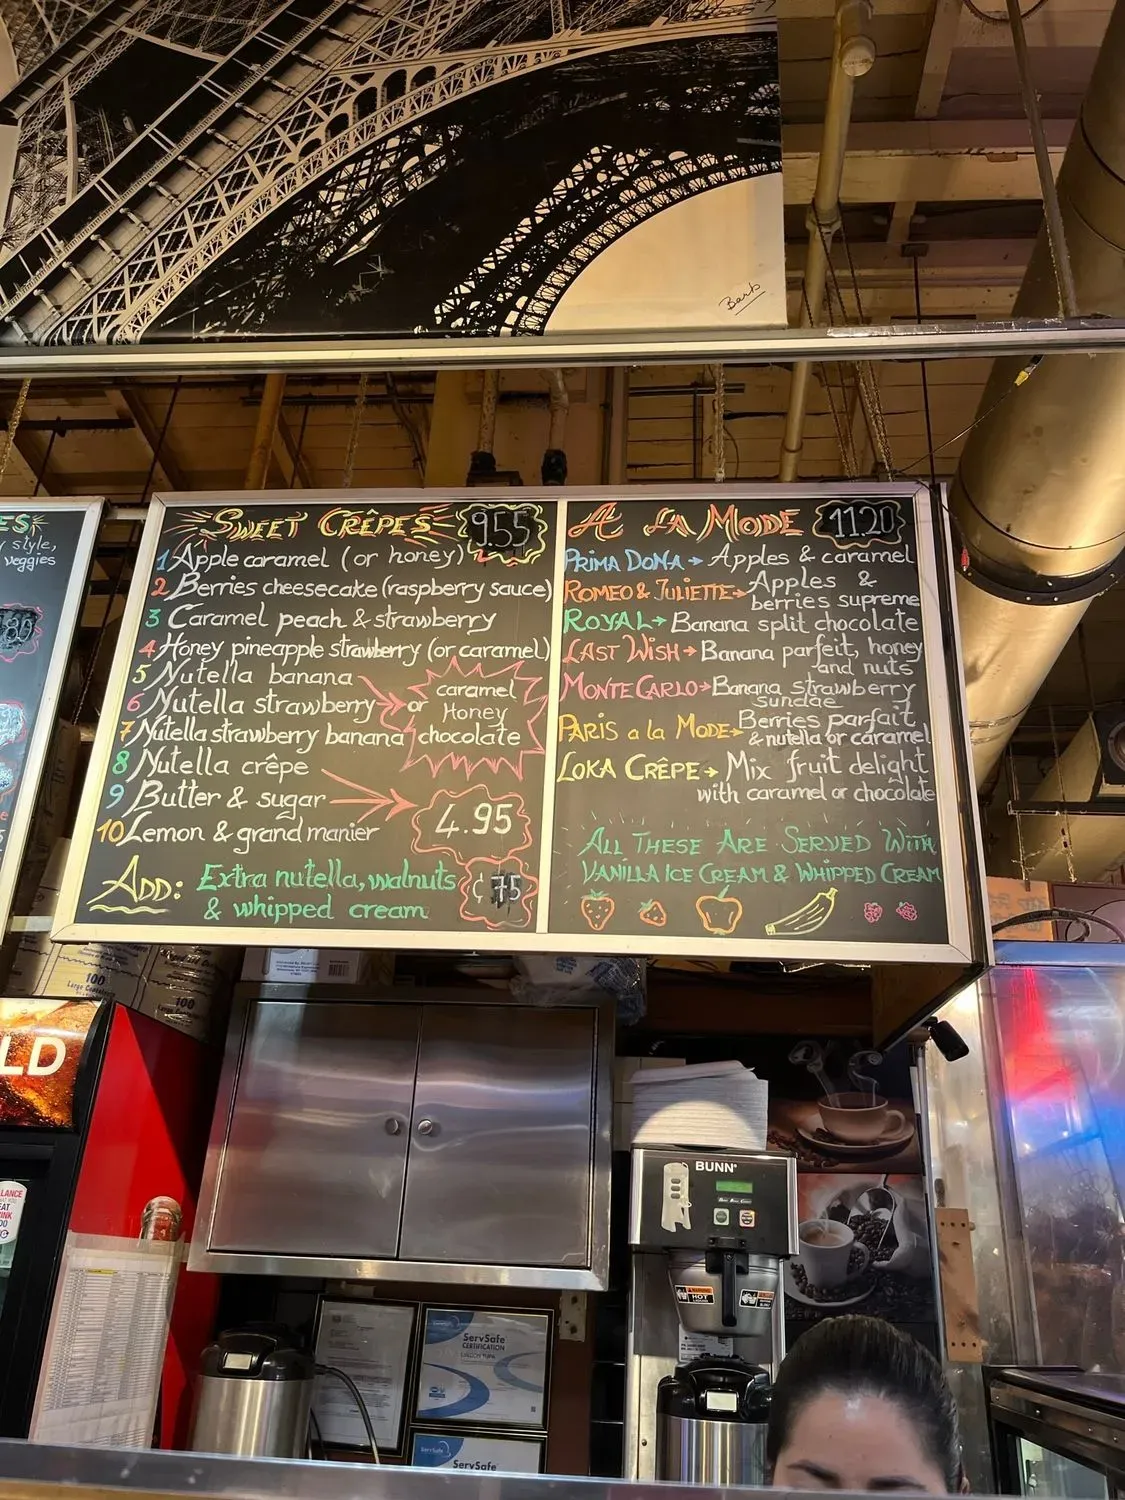 Barb
ES
style,
veggies
SWEET CRÊPES 9.55
1 Apple caramel (or honey)
2 Berries cheesecake (raspberry sauce)
3 Caramel peach & strawberry
4 Honey pineapple strawberry (or caramel)
5 Nutella banana
6 Nutella strawberry
7 Nutella strawberry banana
caramel
or Honey
chocolate
8 Nutella crêpe
9 Butter & sugar
10 Lemon & grand manier
4.95
ADD: Extra nutella, walnuts
& whipped cream
¢ 75
A LA MODE 11.20
PRIMA DONA → Apples & caramel
ROMEO & JULIETTE → Apples &
berries supreme
ROYAL → Banana split chocolate
LAST WISH → Banana parfeit, honey
and nuts
MONTE CARLO → Banana strawberry
sundae
PARIS a la MODE → Berries parfait
& nutella or caramel
LOKA CRÊPE → Mix fruit delight
with caramel or chocolate
ALL THESE ARE SERVED WITH
VANILLA ICE CREAM & WHIPPED CREAM
100
100
LD
BUNN
HOT
ServSafe
CERTIFICATION
ServSafe